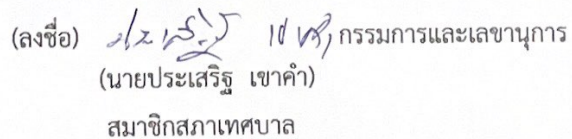 (ลงชื่อ) ประเสริฐ เขาคำ กรรมการและเลขานุการ
(นายประเสริฐ เขาคำ)
สมาชิกสภาเทศบาล